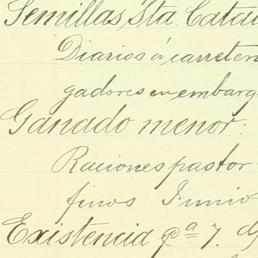 Semillas, Sta. Catal
Diarios á, carreten
gadores en embarq
Ganado menor:
Raciones pastor
finos Junio
Existencia pª 7. d